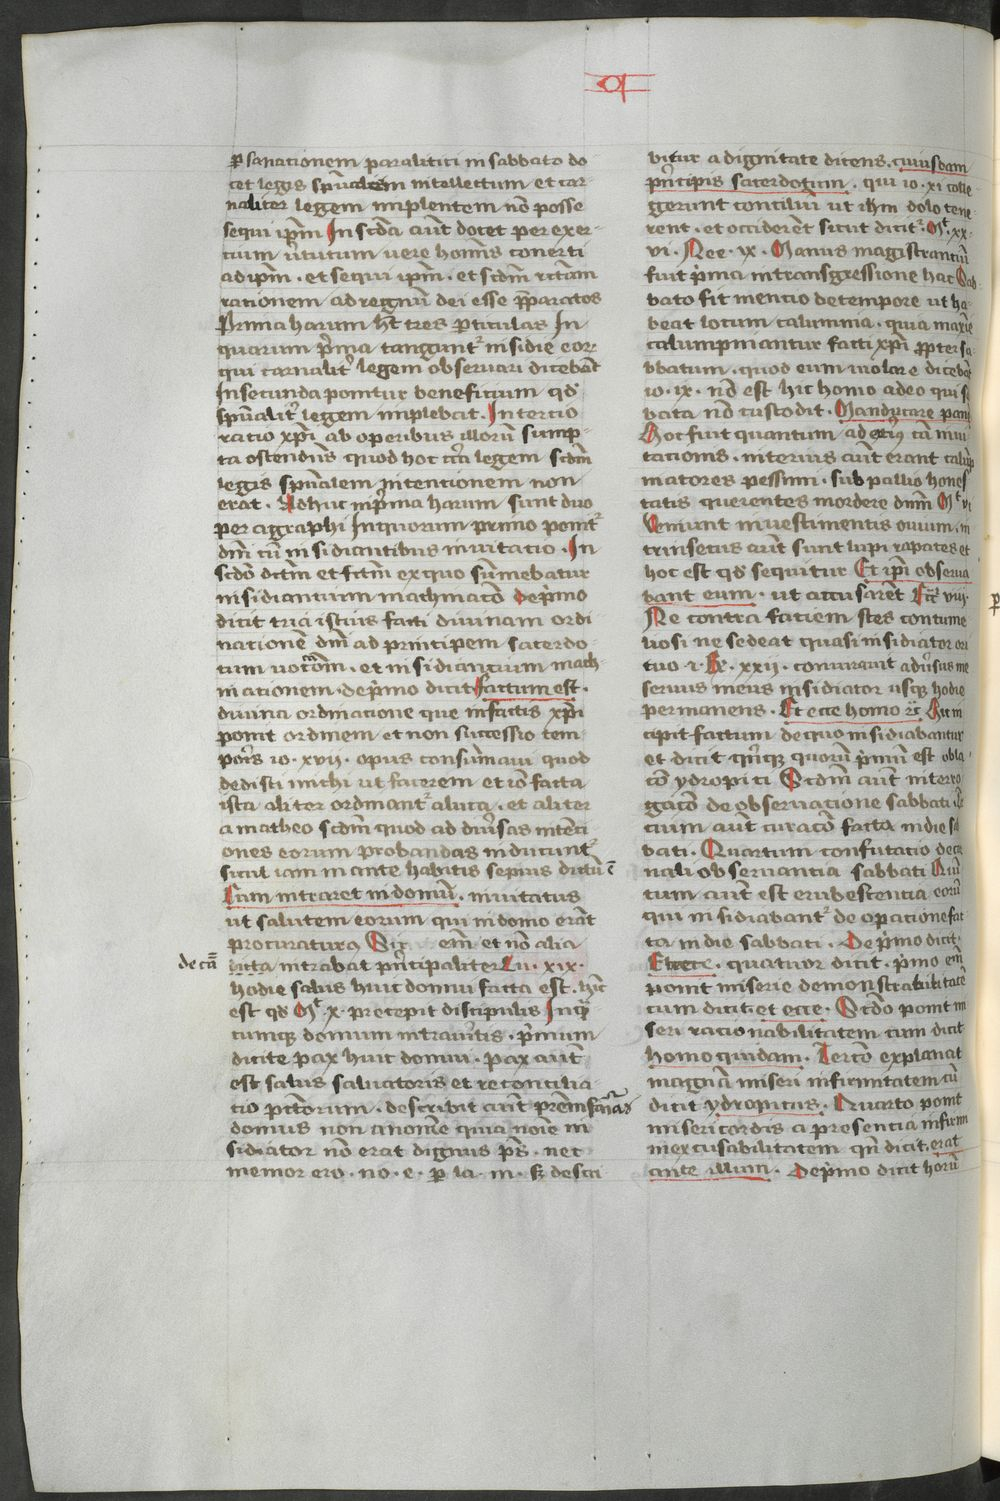 ꝑ sanationem paralitici in sabbato do
cet legis spūalem intellectum et car-
naliter legem implentem nō posse
sequi ipm̄ In scda aūt docet per exer-
cium v̓tutum vere homīs conerti
ad ipm̄ . et sequi ipm̄ . et scdm̄ rctam
rationem ad regnū dei esse p̄paratos
Prima harum hꝫ tres ꝑticulas In
quarum p̓ma tangunt᷑ insidie eor
qui carnalit̓ legem observari dicebāt
In secunda ponitur beneficium qd̓
spūalit̓ legem implebat . In tercio
ratio xp̄i ab operibus illorū sump-
ta ostendēs quod hoc cͣ legem scdm̄
legis spūalem intentionem non
erat . Adhuc in p̓ma harum sunt duo
peragraphi In quorum primo ponit᷑
dn̄i cū insidiantibus invitatio . In
scdō dictm̄ et fctm̄ ex quo sūmebatur
insidiantium machinacō De p̓mo
dicit tria istius facti divinam ordi
nationē dn̄i ad principem sacerdo-
tum vocacōm . et insidiancium mach-
inationem . de p̓mo dicit factum est .
divina ordinacione que in factis xp̄i
ponit ordinem et non successio tem
poris io . xvii . opus consūmavi quod
dedisti michi ut facerem et iō facta
ista aliter ordinant᷑ a luca . et aliter
a matheo scdm̄ quod ad dīv̓sas intenci
ones eorum probandas inducunt᷑
sicut iam in ante habitis sepius dictū ē
Cum intraret in domū . invitatus
ut salutem eorum qui in domo erāt
procuraturꝰ Sic em̄ et nō alia
de cā
intrabat p̓ncipaliter Lu . xix .
hodie salus huic domui facta est . hīc
est qd̓ Mͭ x . precepit discipulis In qͣ
cumqꝫ domum intrav̓itis . p̓mum
dicite pax huic domui . pax aūt
est salus salvatoris et reconcilia-
cio pctorum . describit aūt
domus non a nomīe quia noīe in
sidiator nō erat dignus ps̄ . nec
memor ero . no . e . ꝑ la . m . sꝫ descri
bitur a dignitate dicens . cuiusdam
p̓ncipis sacerdotum . qui io . xi colle
gerunt conciliū ut ihm̄ dolo tene-
rent . et occiderēt sicut dicit᷑ Mͭ xx-
vi . Nee . ix . Manus magistratuū
fuit p̓ma in transgressione hac Sab-
bato fit mencio de tempore ut ha-
beat locum calumnia . quia maxīe
calumpniantur facti xp̄i ꝓpter sa-
bbatum . quod eum violare dicebāt
io . ix . nō est hic homo a deo qui sa
bata nō custodit . Manducare panē
Hoc fuit quantum ad extīꝰ cā invi
tacionis . interius aūt erant calūp
niatores pessimi . sub pallio hones
tatis querentes mordere dnm̄ Mͭ vi
Veniunt in vestimentis ovium . in
trinsecus aūt sunt lupi rapaces et
hoc est qd̓ sequitur Et ip̄i observa
bant eum . ut accusarēt Eccͣ viii .
Ne contra faciem stes contume
liosi ne sedeat quasi insidiator ori
tuo . i . R̄ . xxii . coniuravit adv̓sus me
servus meus insidiator usqꝫ hodie
permanens . Et ecce homo ꝛc̄ hic in
cipit factum de quo insidiabantur
et dicit qͥnqꝫ quorū p̓mū est obla
cō ydropici Scdm̄ aūt interro
gacō de observacione sabbati
cium aūt curacō facta in die sa
bati . Quartum confutacio de car
nali observancia sabbati Quī
tum aūt est erubescencia eorū
qui insidiabant᷑ de oꝑatione fac
ta in die sabbati . De p̓mo dicit
Et ecce . quatuor dicit . p̓mo em̄
ponit miserie demonstrabilitatē
cum dicit . et ecce . Scdo ponit mi
seri racionabilitatem cum dicit
homo quidam . Tercō explanat
magnā miseri infirmitatem cū
dicit ydropicus . Quarto ponit
misericordis a presencia infirmi
inexcusabilitatem qn̄ dicit . erat
ante illum . De p̓mo dicit horū